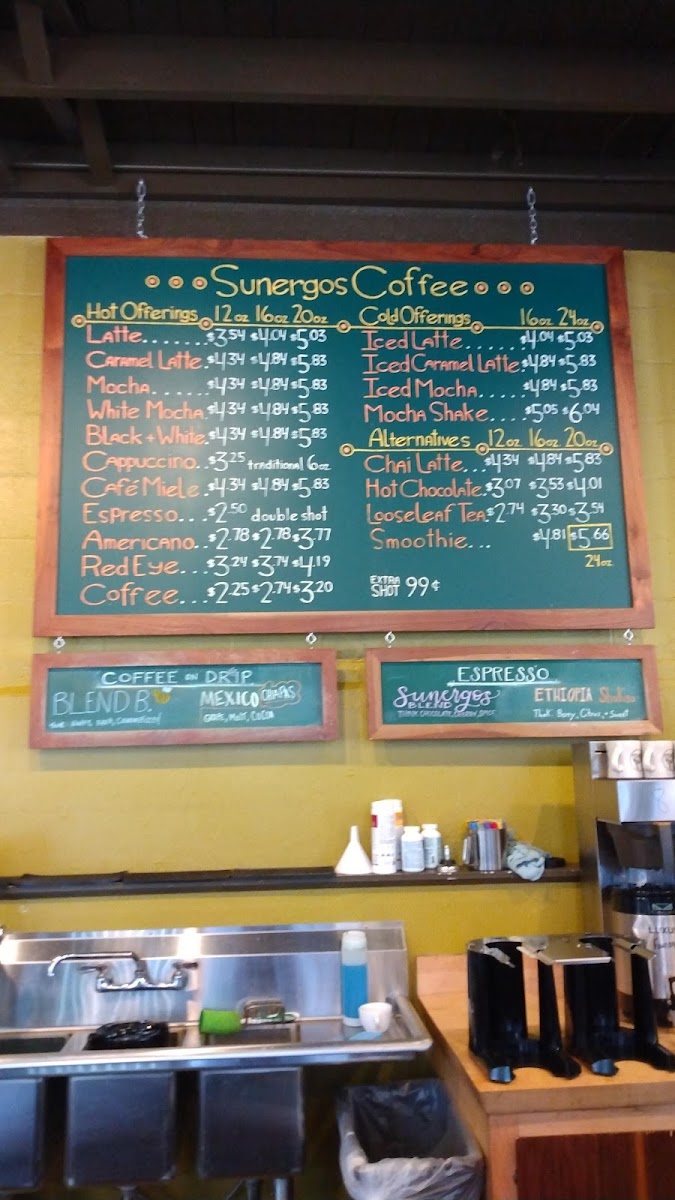 Sunergos Coffee
Hot Offerings 12oz 16oz 20oz
Latte......$3.54 $4.04 $5.03
Caramel Latte.$4.34 $4.84 $5.83
Mocha......$4.34 $4.84 $5.83
White Mocha.$4.34 $4.84 $5.83
Black + White.$4.34 $4.84 $5.83
Cappuccino..$3.25 traditional 6oz
Café Miele.$4.34 $4.84 $5.83
Espresso...$2.50 double shot
Americano..$2.78 $2.78 $3.77
Red Eye...$3.24 $3.74 $4.19
Coffee...$2.25 $2.74 $3.20
Cold Offerings 16oz 24oz
Iced Latte......$4.04 $5.03
Iced Caramel Latte $4.84 $5.83
Iced Mocha.....$4.84 $5.83
Mocha Shake....$5.05 $6.04
Alternatives 12oz 16oz 20oz
Chai Latte...$4.34 $4.84 $5.83
Hot Chocolate.$3.07 $3.53 $4.01
Looseleaf Tea.$2.74 $3.30 $3.54
Smoothie... $4.81 $5.66
24oz
EXTRA
SHOT 99¢
COFFEE ON DRIP
BLEND B.
MEXICO CHIAPAS
GRAPE, MALT, COCOA
ESPRESSO
Sunergos
BLEND
ETHIOPIA